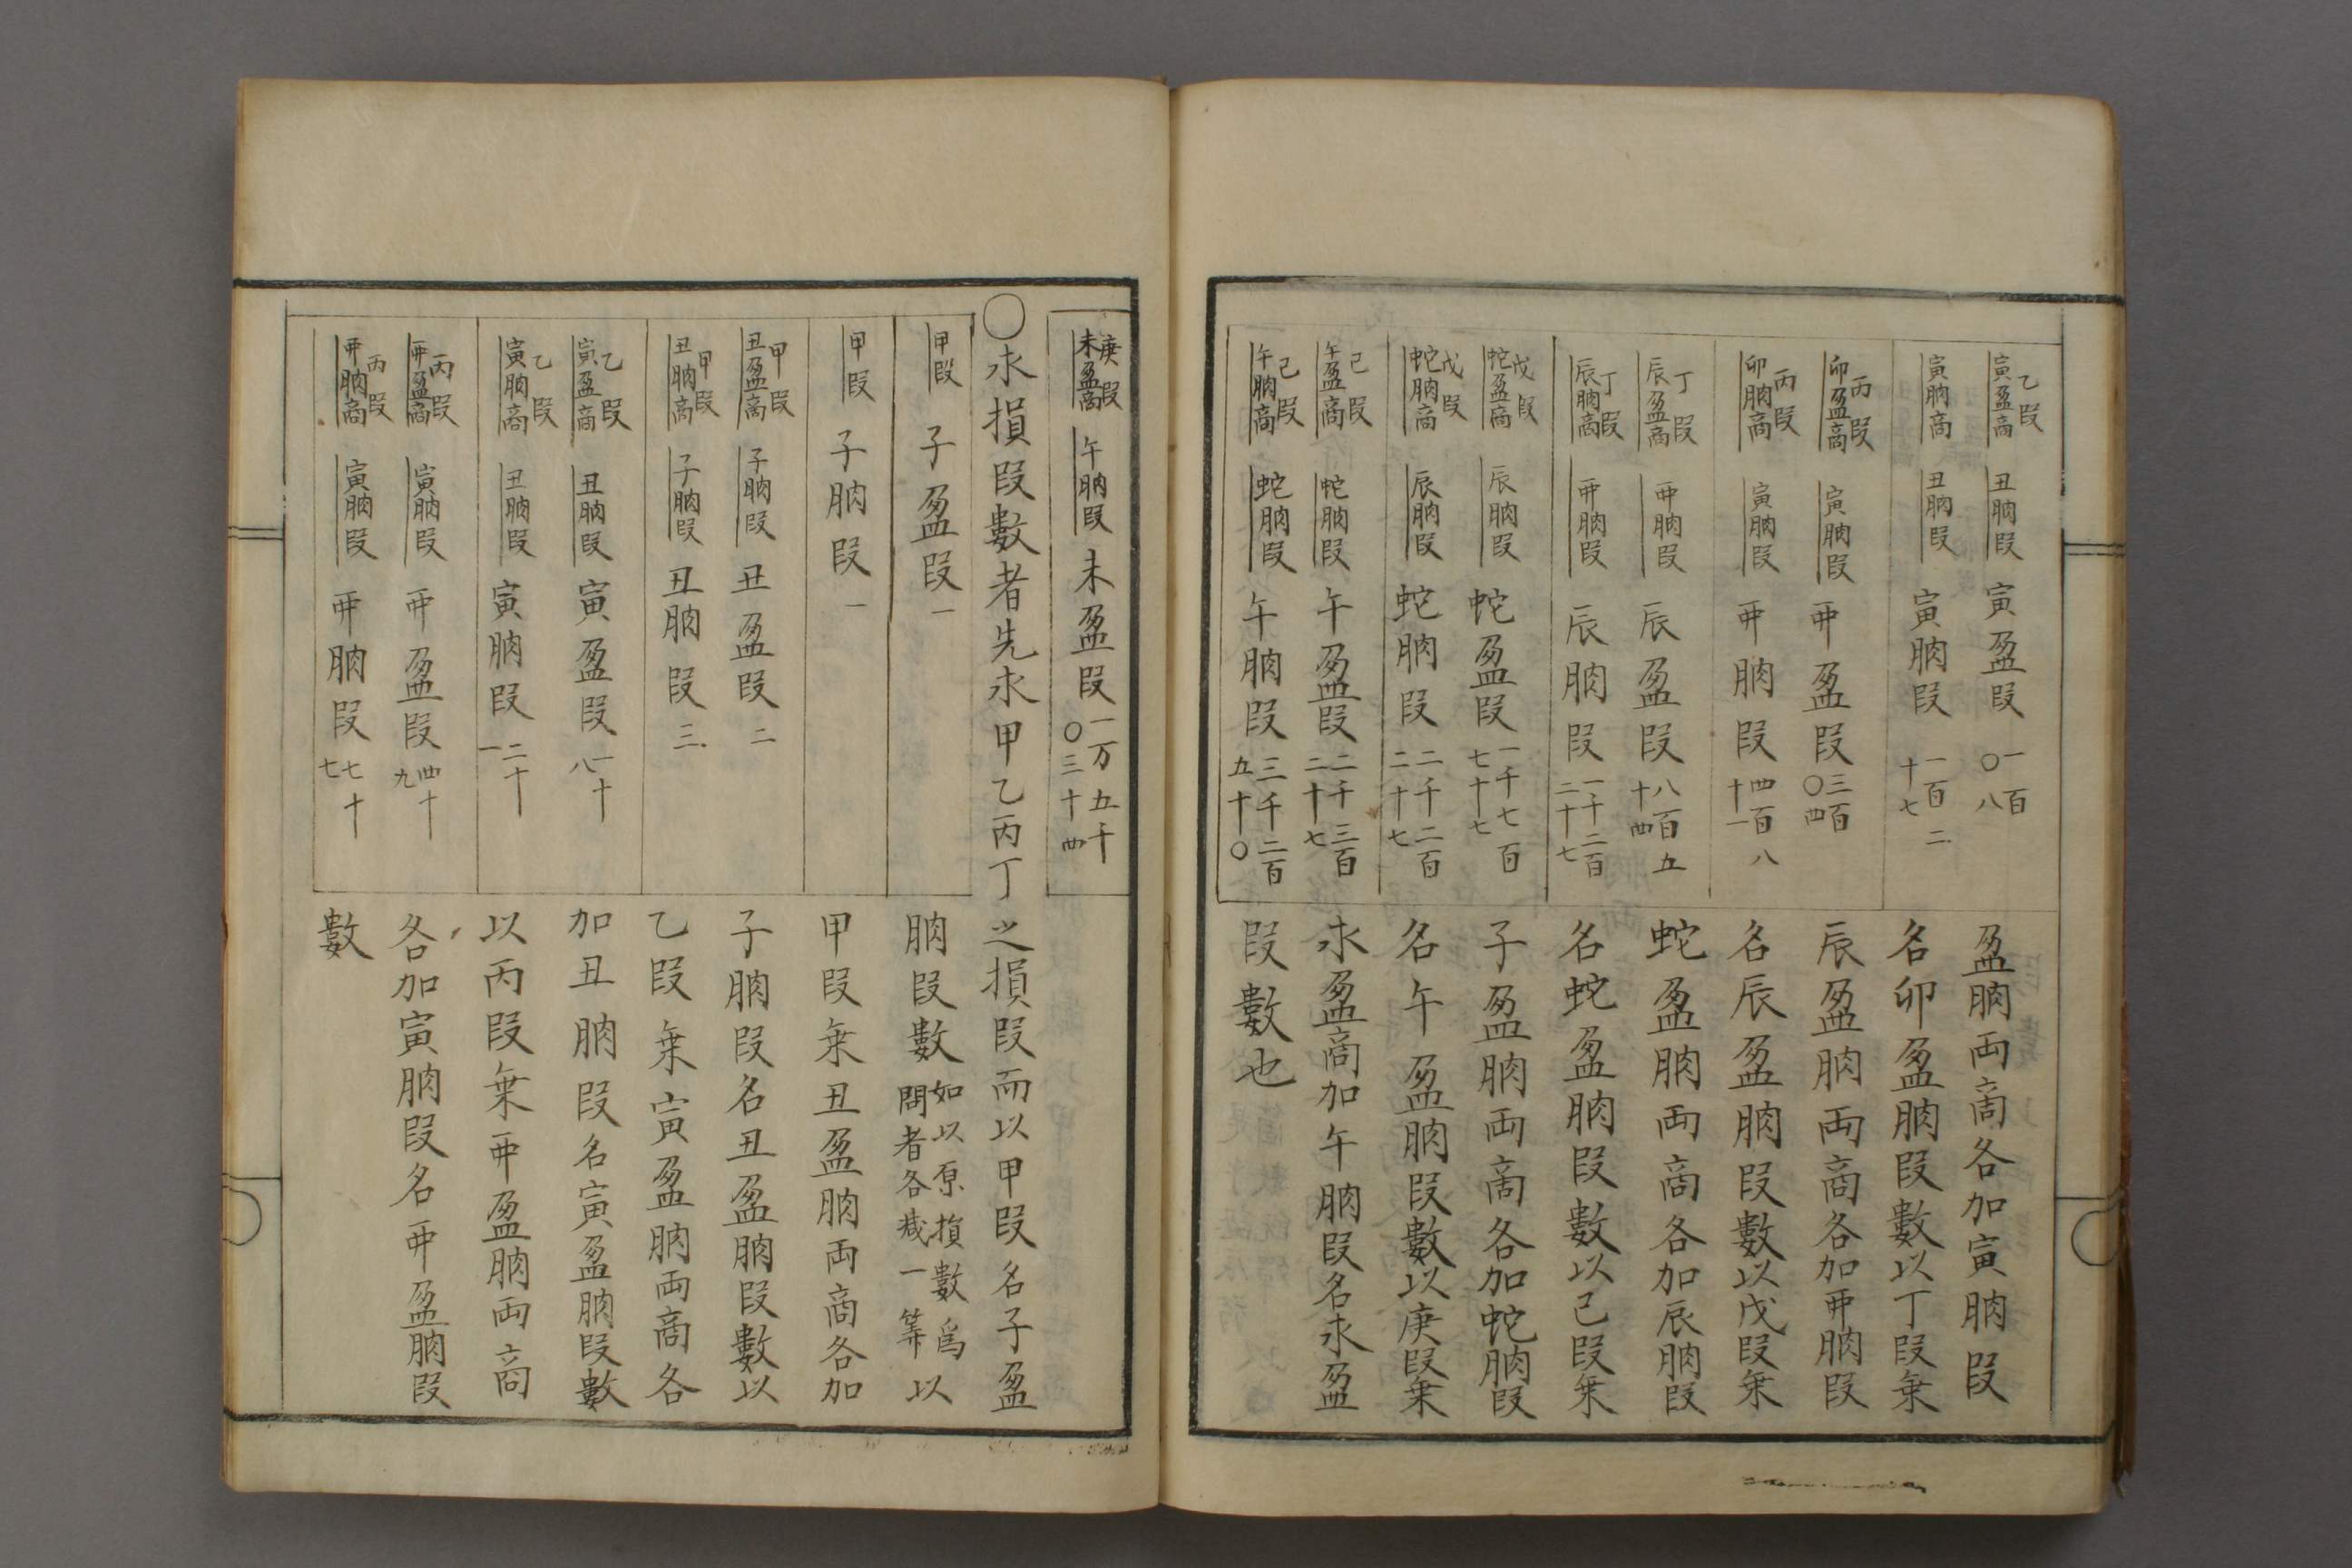 乙段寅盈商 丑朒段 寅盈段 一百〇八
寅朒商 丑朒段 寅朒段 一百二十七
丙段卯盈商 寅朒段 戼盈段 三百〇四
丙段卯朒商 寅朒段 戼朒段 四百八十一
丁段辰盈商 戼朒段 辰盈段 八百五十四
丁段辰朒商 戼朒段 辰朒段 一千二百二十七
戊段蛇盈商 辰朒段 蛇盈段 一千七百七十七
戊段蛇朒商 辰朒段 蛇朒段 二千二百二十七
己段午盈商 蛇朒段 午盈段 二千三百二十七
己段午朒商 蛇朒段 午朒段 三千二百五十〇
盈朒両商各加寅朒段
名卯盈朒段數以丁段乗
辰盈朒両商各加戼朒段
名辰盈朒段數以戊段乗
蛇盈朒両商各加辰朒段
名蛇盈朒段數以己段乗
子盈朒両商各加蛇朒段
名午盈朒段數以庚段乗
求盈商加午朒段名求盈
段數也
庚段未盈商 午朒段 未盈段 一万五千〇三十四
〇求損段數者先求甲乙丙丁之損段而以甲段名子盈
甲段 子盈段 一
甲段 子朒段 一
甲段丑盈商 子朒段 丑盈段 二
甲段丑朒商 子朒段 丑朒段 三
乙段寅盈商 丑朒段 寅盈段 一十八
乙段寅朒商 丑朒段 寅朒段 二十一
丙段戼盈商 寅朒段 戼盈段 四十九
丙段戼朒商 寅朒段 戼朒段 七十七
朒段數如以原損數爲問者各減一筭以
甲段乗丑盈朒両商各加
子朒段名丑盈朒段數以
乙段乗寅盈朒両商各
加丑朒段名寅盈朒段數
以丙段乗戼盈朒両商
各加寅朒段名戼盈朒段
數